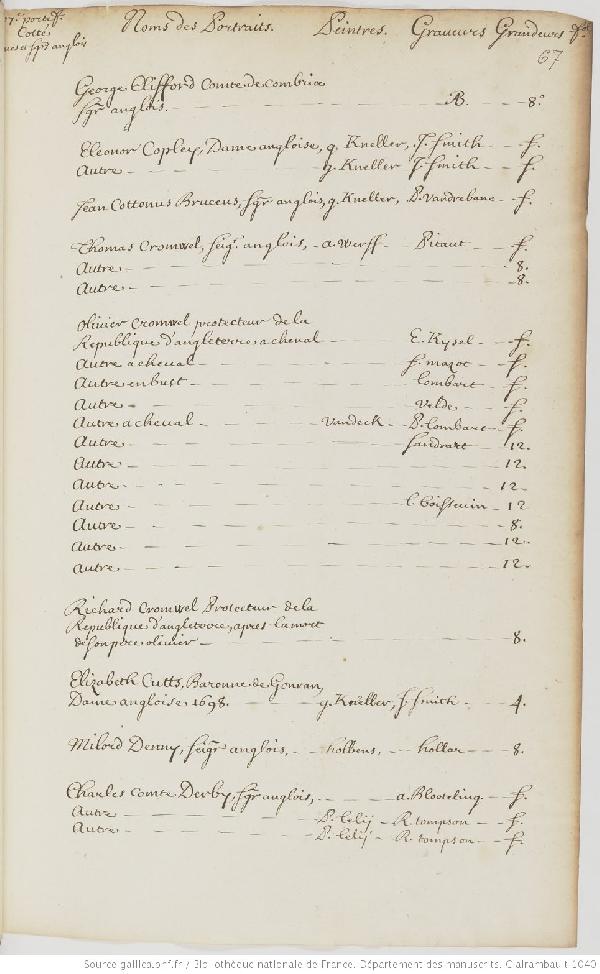 Noms des Portraits. Peintres. Graveurs Grandeurs
67
George Clifford Comte de Combrie
sgr anglois. 8°
Eleonor Copley, Dame angloise, g. Kneller, J. Smith f.
Autre g. Kneller J. Smith f.
Jean Cottonus Bruceus, sgr anglois, g. Kneller, P. Vandrebanc f.
Thomas Cromwel, seigr anglois, a. Werff Picaut f.
Autre 8.
Autre 8.
Olivier Cromwel protecteur de la
Republique d'angleterre a cheval E. Kysel f.
Autre a cheval f. mazot f.
Autre en bust lombart f.
Autre Velde f.
Autre a cheval Vandeck P. lombart f.
Autre Sandrart 12.
Autre 12.
Autre 12
Autre 12
Autre 8.
Autre 12.
Autre 12.
Richard Cromwel Protecteur de la
Republique d'angleterre, apres la mort
de son pere olivier 8.
Elizabeth Cutts, Baronne de Gouran,
Dame angloise 1698. g. Kneller, J. Smith 4.
Milord Denny, seigr anglois, holbens, hollar 8.
Charles Comte Derby, sgr anglois, a. Blooteling f.
Autre P. Lelij R. tompson f.
Autre P. Lelij R. tompson f.
Source gallica.bnf.fr / Bibliothèque nationale de France. Département des manuscrits. Clairambault 1040